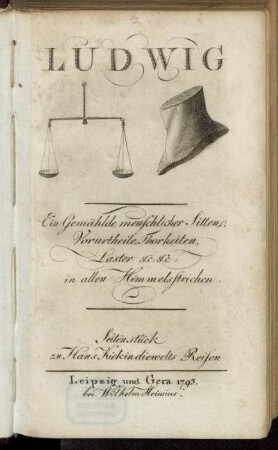 LUDWIG
Ein Gemählde menschlicher Sitten,
Vorurtheile, Thorheiten,
Laster &c. &c.
in allen Himmelsstrichen.
Seitenstück
zu Hans Kiekindiewelts Reisen
Leipzig und Gera 1795.
bei Wilhelm Heinsius.